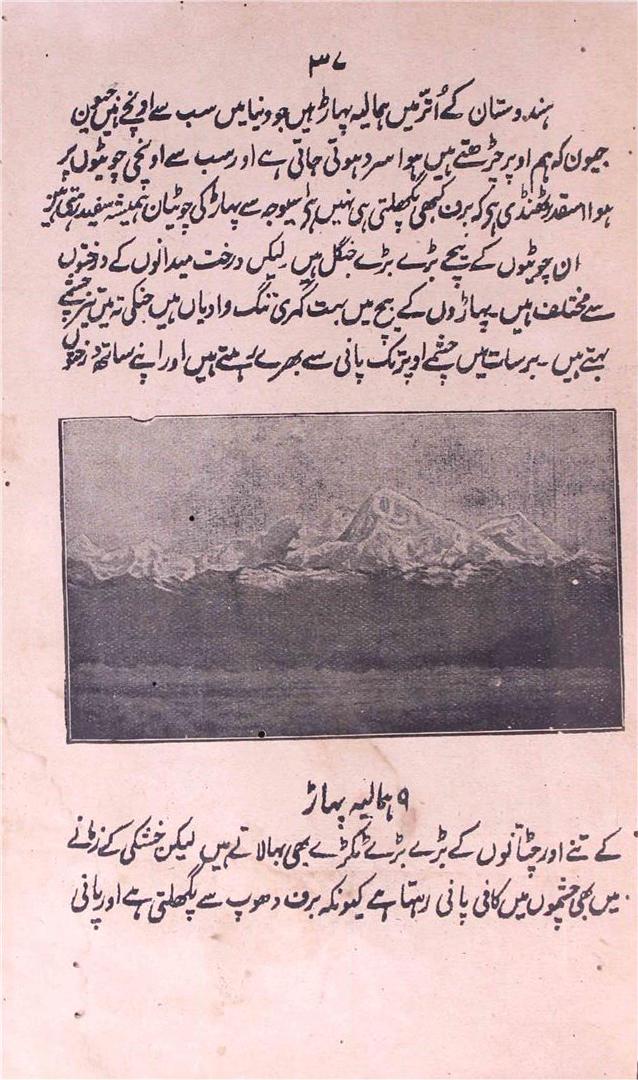 ۳۷
ہندوستان کے اُتر میں ہمالیہ پہاڑ ہیں جو دنیا میں سب سے اونچے ہیں جیون
جیون کہ ہم اوپر چڑھتے ہیں ہوا سرد ہوتی جاتی ہے اور سب سے اونچی چوٹیوں پر
ہوا اسقدر ٹھنڈی ہی کہ برف کبھی پگھلتی ہی نہیں ہی اسیوجہ سے پہاڑ کی چوٹیان ہمیشہ سفید رہتی ہیں
ان چوٹیوں کے نیچے بڑے بڑے جنگل ہیں لیکن درخت میدانوں کے درختوں
سے مختلف ہیں۔ پہاڑوں کے بیچ میں بہت گہری تنگ وادیاں ہیں جنکی تہ میں تیز چشمے
بہتے ہیں۔ برسات میں چشمے اوپر تک پانی سے بھرے رہتے ہیں اور اپنے ساتھ درختوں
۹ ہمالیہ پہاڑ
کے تنے اور چٹانوں کے بڑے بڑے ٹکڑے بھی بہا لاتے ہیں لیکن خشکی کے زمانے
میں بھی چشموں میں کافی پانی رہتا ہے کیونکہ برف دھوپ سے پگھلتی ہے اور پانی